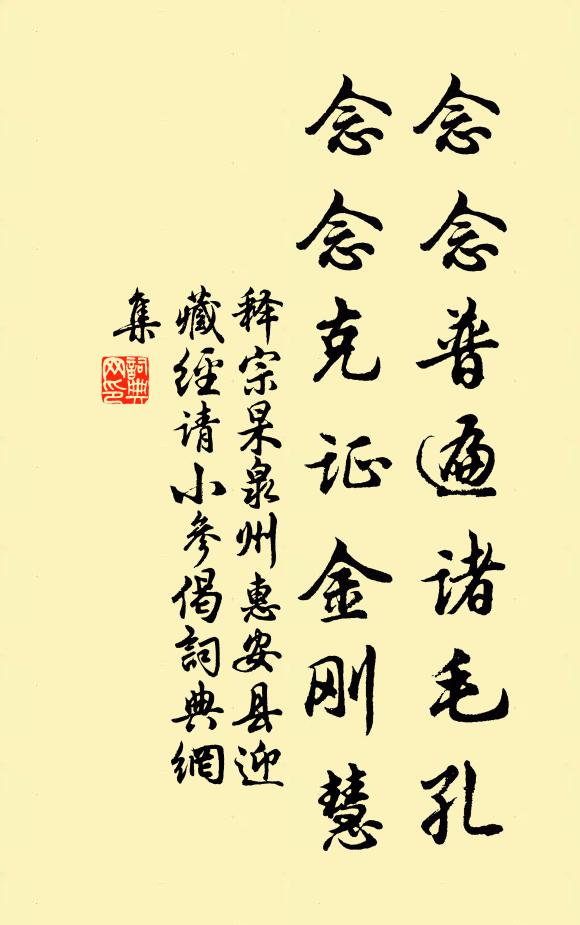 念念普遍诸毛孔
念念克证金刚慧
释宗杲泉州惠安县迎
藏經请小参偈詞典網
集
詞典
网印